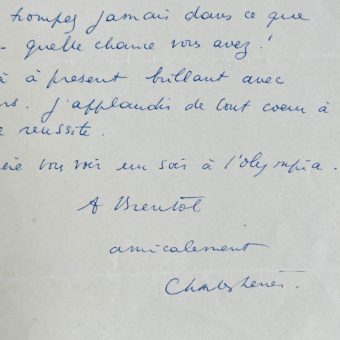 trompez jamais dans ce que
- quelle chance vous avez !
à présent brillant avec
rs. J'applaudis de tout coeur à
e réussite.
vous voir un soir à l'Olympia.
A Bientôt
amicalement